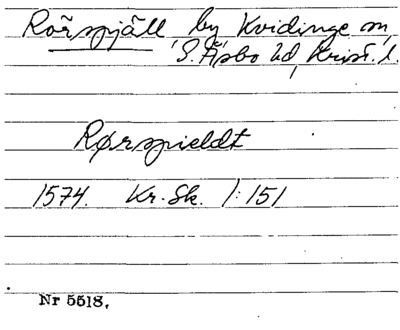 Rörspjäll by Kvidinge sn,
S. Åsbo hd, Krist. l.
Rørspieldt
1574. Kr. Sk. 1:151
Nr 5518.